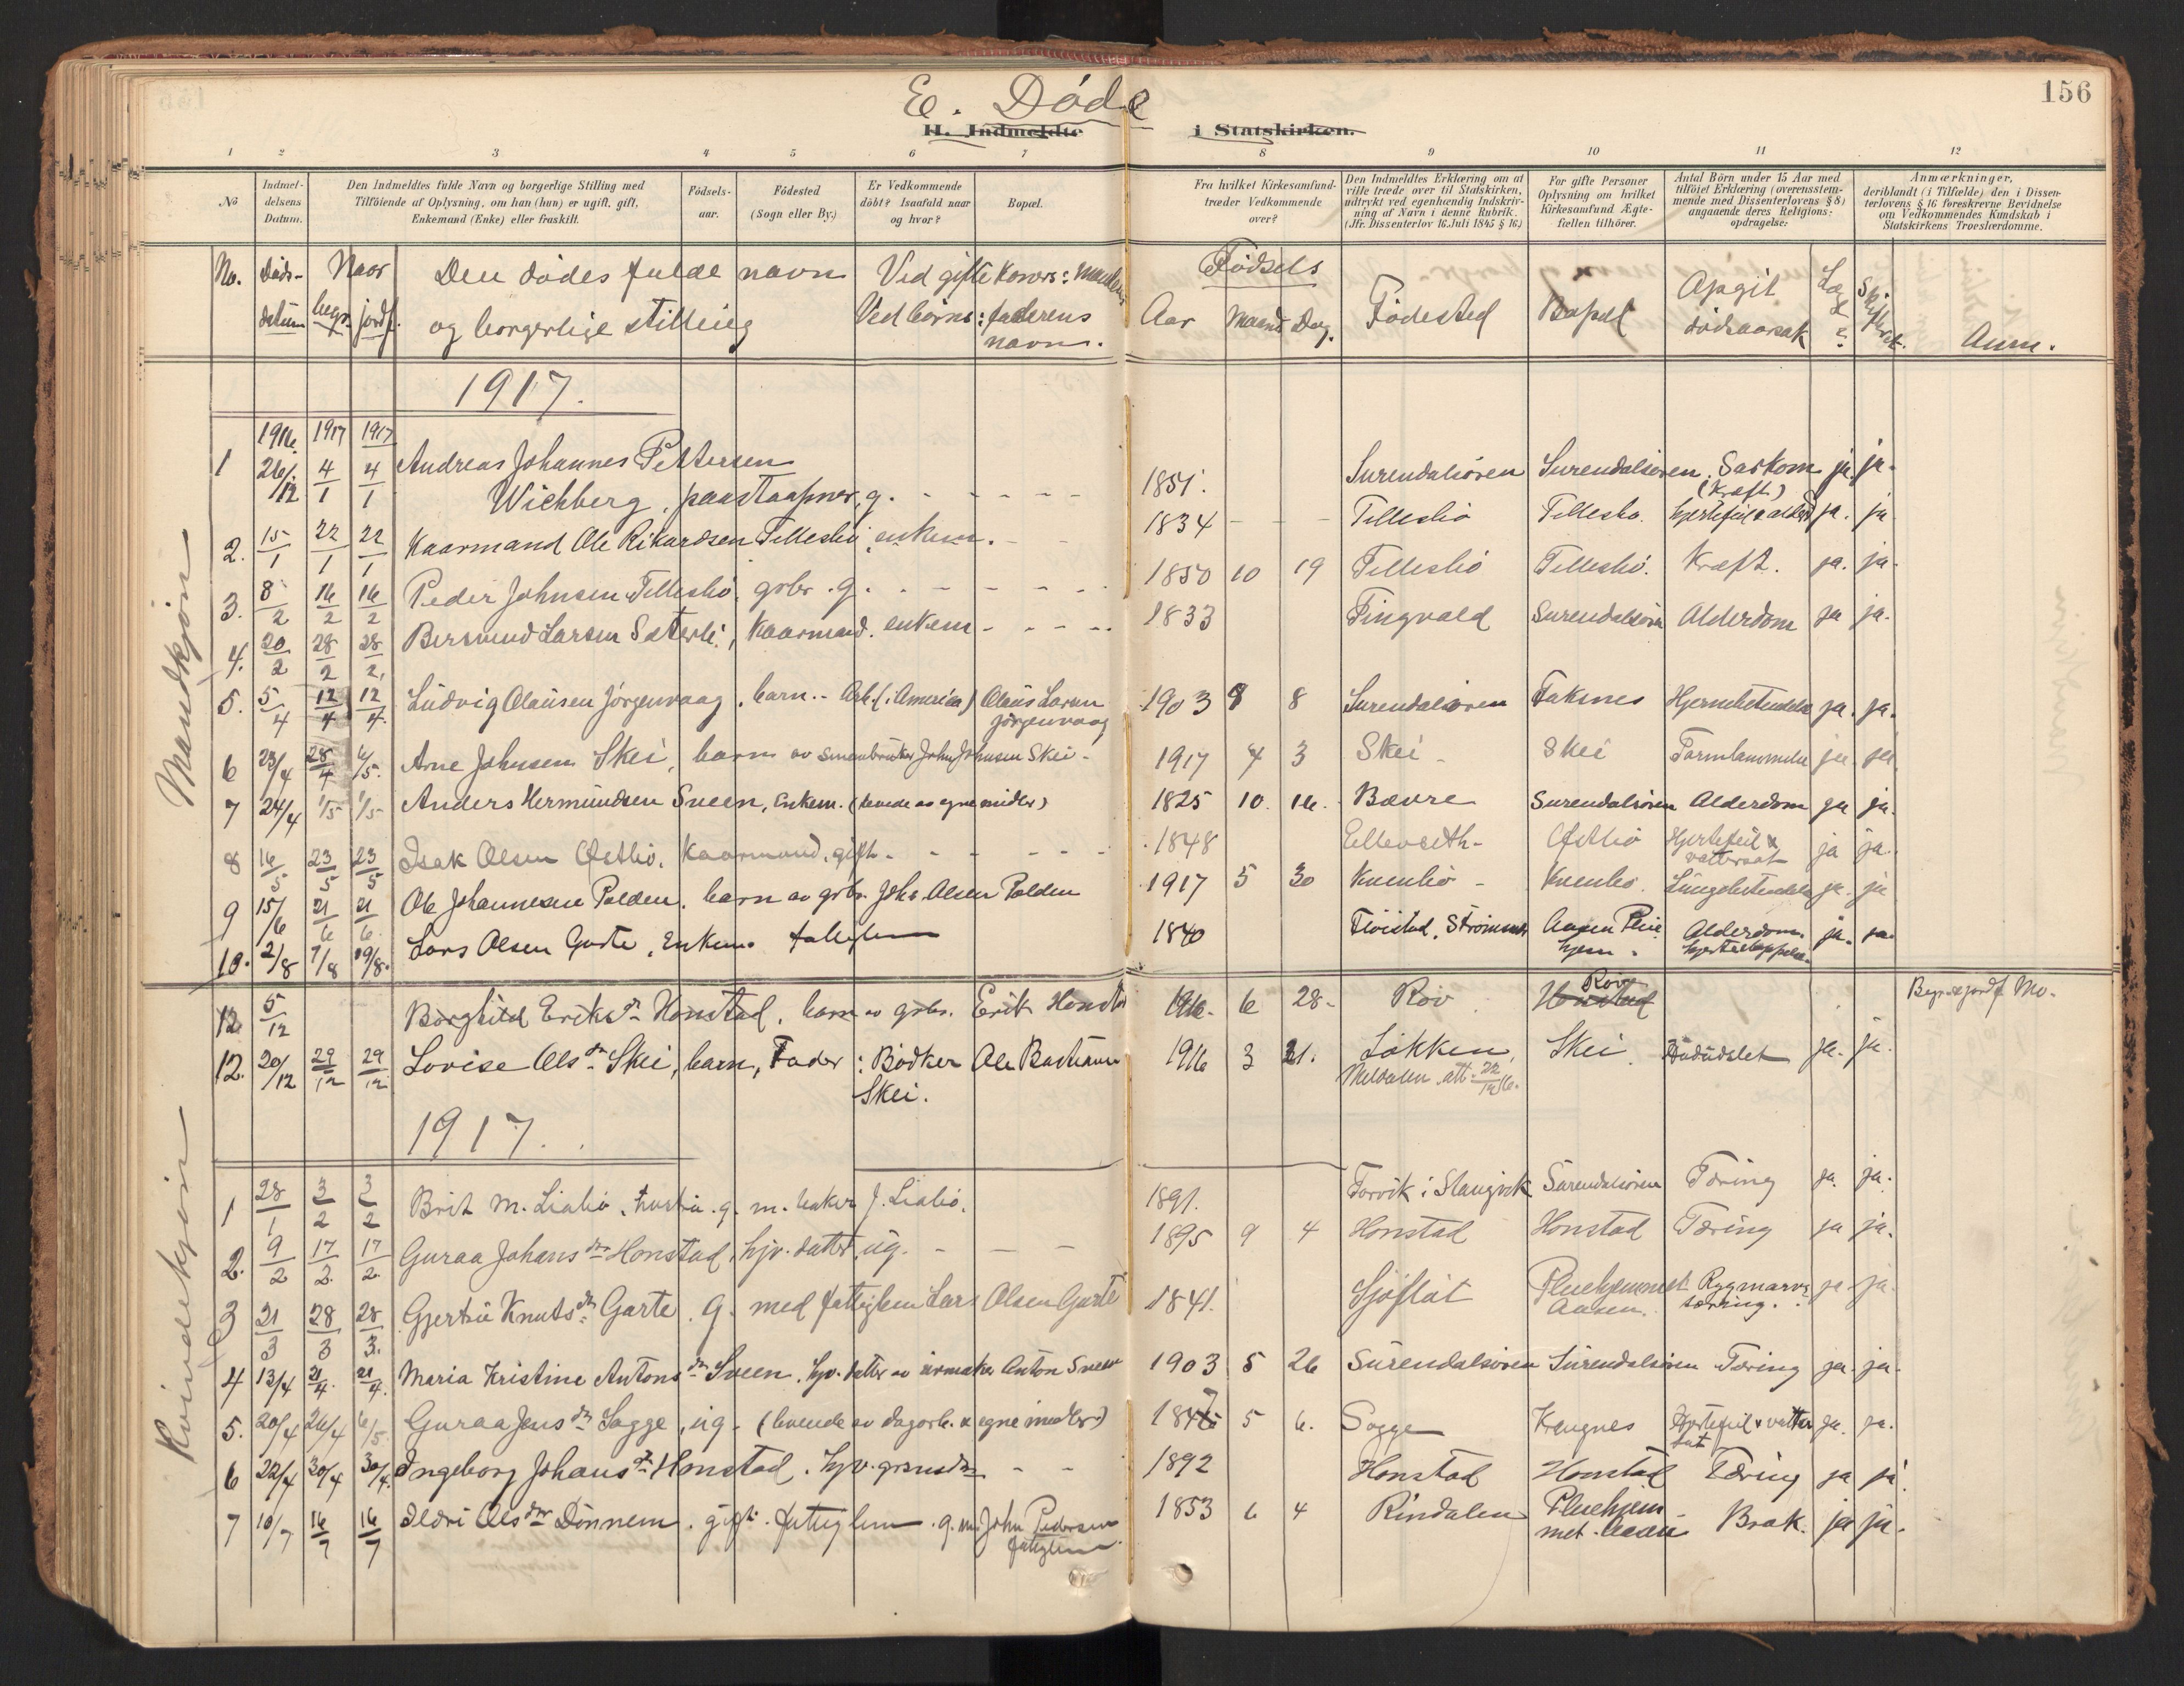 E. Døde
156
II. Indmeldte i Statskirken.
1 2 3 4 5 6 7 8 9 10 11 12
No
Indmeldelsens Datum.
Den Indmeldtes fulde Navn og borgerlige Stilling med
Tilføiende af Oplysning, om han (hun) er ugift, gift,
Enkemand (Enke) eller fraskilt.
Fødselsaar.
Fødested
(Sogn eller By.)
Er Vedkommende
døbt? Isaafald naar
og hvor?
Bopæl.
Fra hvilket Kirkesamfund
træder Vedkommende
over?
Den Indmeldtes Erklæring om at
ville træde over til Statskirken,
udtrykt ved egenhændig Indskriv-
ning af Navn i denne Rubrik.
(Jfr. Dissenterlov 16 Juli 1845 § 16.)
For gifte Personer
Oplysning om hvilket
Kirkesamfund Ægte-
fællen tilhører.
Antal Børn under 15 Aar med
tilføiet Erklæring (overensstem-
mende med Dissenterlovens § 8)
angaaende deres Religions-
opdragelse.
Anmærkninger,
deriblandt (i Tilfælde) den i Dissen-
terlovens § 16 foreskrevne Bevidnelse
om Vedkommendes Kundskab i
Statskirkens Troeslærdomme.
No. Døds-datum Naar begr. jordf. Den dødes fulde navn og borgerlige stilling Ved gifte koner: mandens Ved børns: faderens navn. Fødsels Aar Maaned Dag. Fødested Bopæl Opgit dødsaarsak Læge? Skifteret. Anm.
Mandkjøn
1917.
1916. 1917 1917
1 26/12 4/1 4/1 Andreas Johannes Pettersen
Wichberg, poastaapner, g. 1851. Surendalsøren Surendalsøren Sarkom (Kræft) ja ja.
2. 15/1 22/1 22/1 Kaarmand Ole Rikardsen Telleslø, enkem. 1834 Telleslø Tellesbø. Hjertefeil & alderd ja. ja
3. 8/2 16/2 16/2 Peder Johnsen Telleslø, gbr. g. 1850 10 19 Telleslø Tellesbø. Kræft. ja. ja.
4. 20/2 28/2 28/2, Bersvend Larsen Sæterli, Kaarmand. enkem 1833 Tingvold Surendalsøren Alderdom ja ja.
5. 5/4 12/4 12/4. Ludvig Olausen Jørgenvaag, barn.- Arb. (i America) Olaus Larsen Jørgenvaag 1903 8 8 Surendalsøren Taknes Hjernebetændelse ja. ja.
6 23/4 28/4 6/5. Arne Johnsen Skei, barn av smaabruker John Johnsen Skei. 1917 4 3 Skei Skei Tarmlammelse ja ja
7 24/4 1/5 1/5 Anders Hermundsen Sveen, Enkem. (levede av egne midler) 1825 10. 16. Bævre Surendalsøren Alderdom ja ja.
8 16/5 23/5 23/5 Isak Olsen Østbø, Kaarmand, gift. 1848 Ellevseth Østbø Hjertefeil & vattersot ja ja.
9 15/6 21/6 21/6. Ole Johannesen Polden, barn av gbr. Johs Olsen Polden 1917 5 30 Kvenbø Kvenbø. Lungebetændelse ja. ja
10. 2/8 7/8 19/8. Lars Olsen Garte, Enkem. fattiglem 1840 Fløistad, Strømmen Aasen Pleiehjem. Alderdom. hjerteslappelse ja. ja.
Kvindekjøn
12 5/12 Borghild Eriksdtr Honstad, barn av gbr. Erik Honstad 1916. 6 28 Røv Røv Honstad Begr. & jordf. Mo.
12. 20/12 29/12 29/12 Lovise Olsdtr Skei, barn, Fader: Bødker Ole Bastiansen Skei. 1916 3 21. Løkken, Meldalen. att. 22/12 16. Skei Hududslet ja. ja.
1917.
1 28/1 3/2 3/2 Brit M. Lialiø, hustru g. m. baker J. Lialiø. 1891. Torvik i Stangvik Surendalsøren Tæring ja. ja.
2. 9/2 17/2. 17/2. Guraa Johansdtr Honstad, hjv. datter, ug. 1895 9 4 Honstad Honstad Tæring ja ja.
3 21/3 28/3 28/3. Gjertru Knutsdtr Garte. g. med fattiglem Lars Olsen Garte 1841. Sjøflot Pleiehjemmet Aasen. Rygmarvstæring. ja. ja.
4 13/4 21/4. 21/4. Maria Kristine Antonsdtr Sveen. hjv. datter av urmaker Anton Sveen 1903 5 26 Surendalsøren Surendalsøren Tæring ja. ja.
5. 20/4 26/4 6/5. Guraa Jensdtr Sogge, ug. (levende av dagarb. & egne midler) 1847 5 6. Sogge Krangnes Hjertefeil & vattersot ja. ja.
6 22/4 30/4 30/4. Ingeborg Johansdtr Honstad. hjv. 1892 Honstad Honstad Tæring ja ja.
7 10/7 16/7 16/7 Ildri Olsdtr Dønnem. gift. fattiglem. g. m. John Pedersen fattiglem. 1853 6 4 Rindalen Pleiehjemmet Aasen Brok. ja ja.